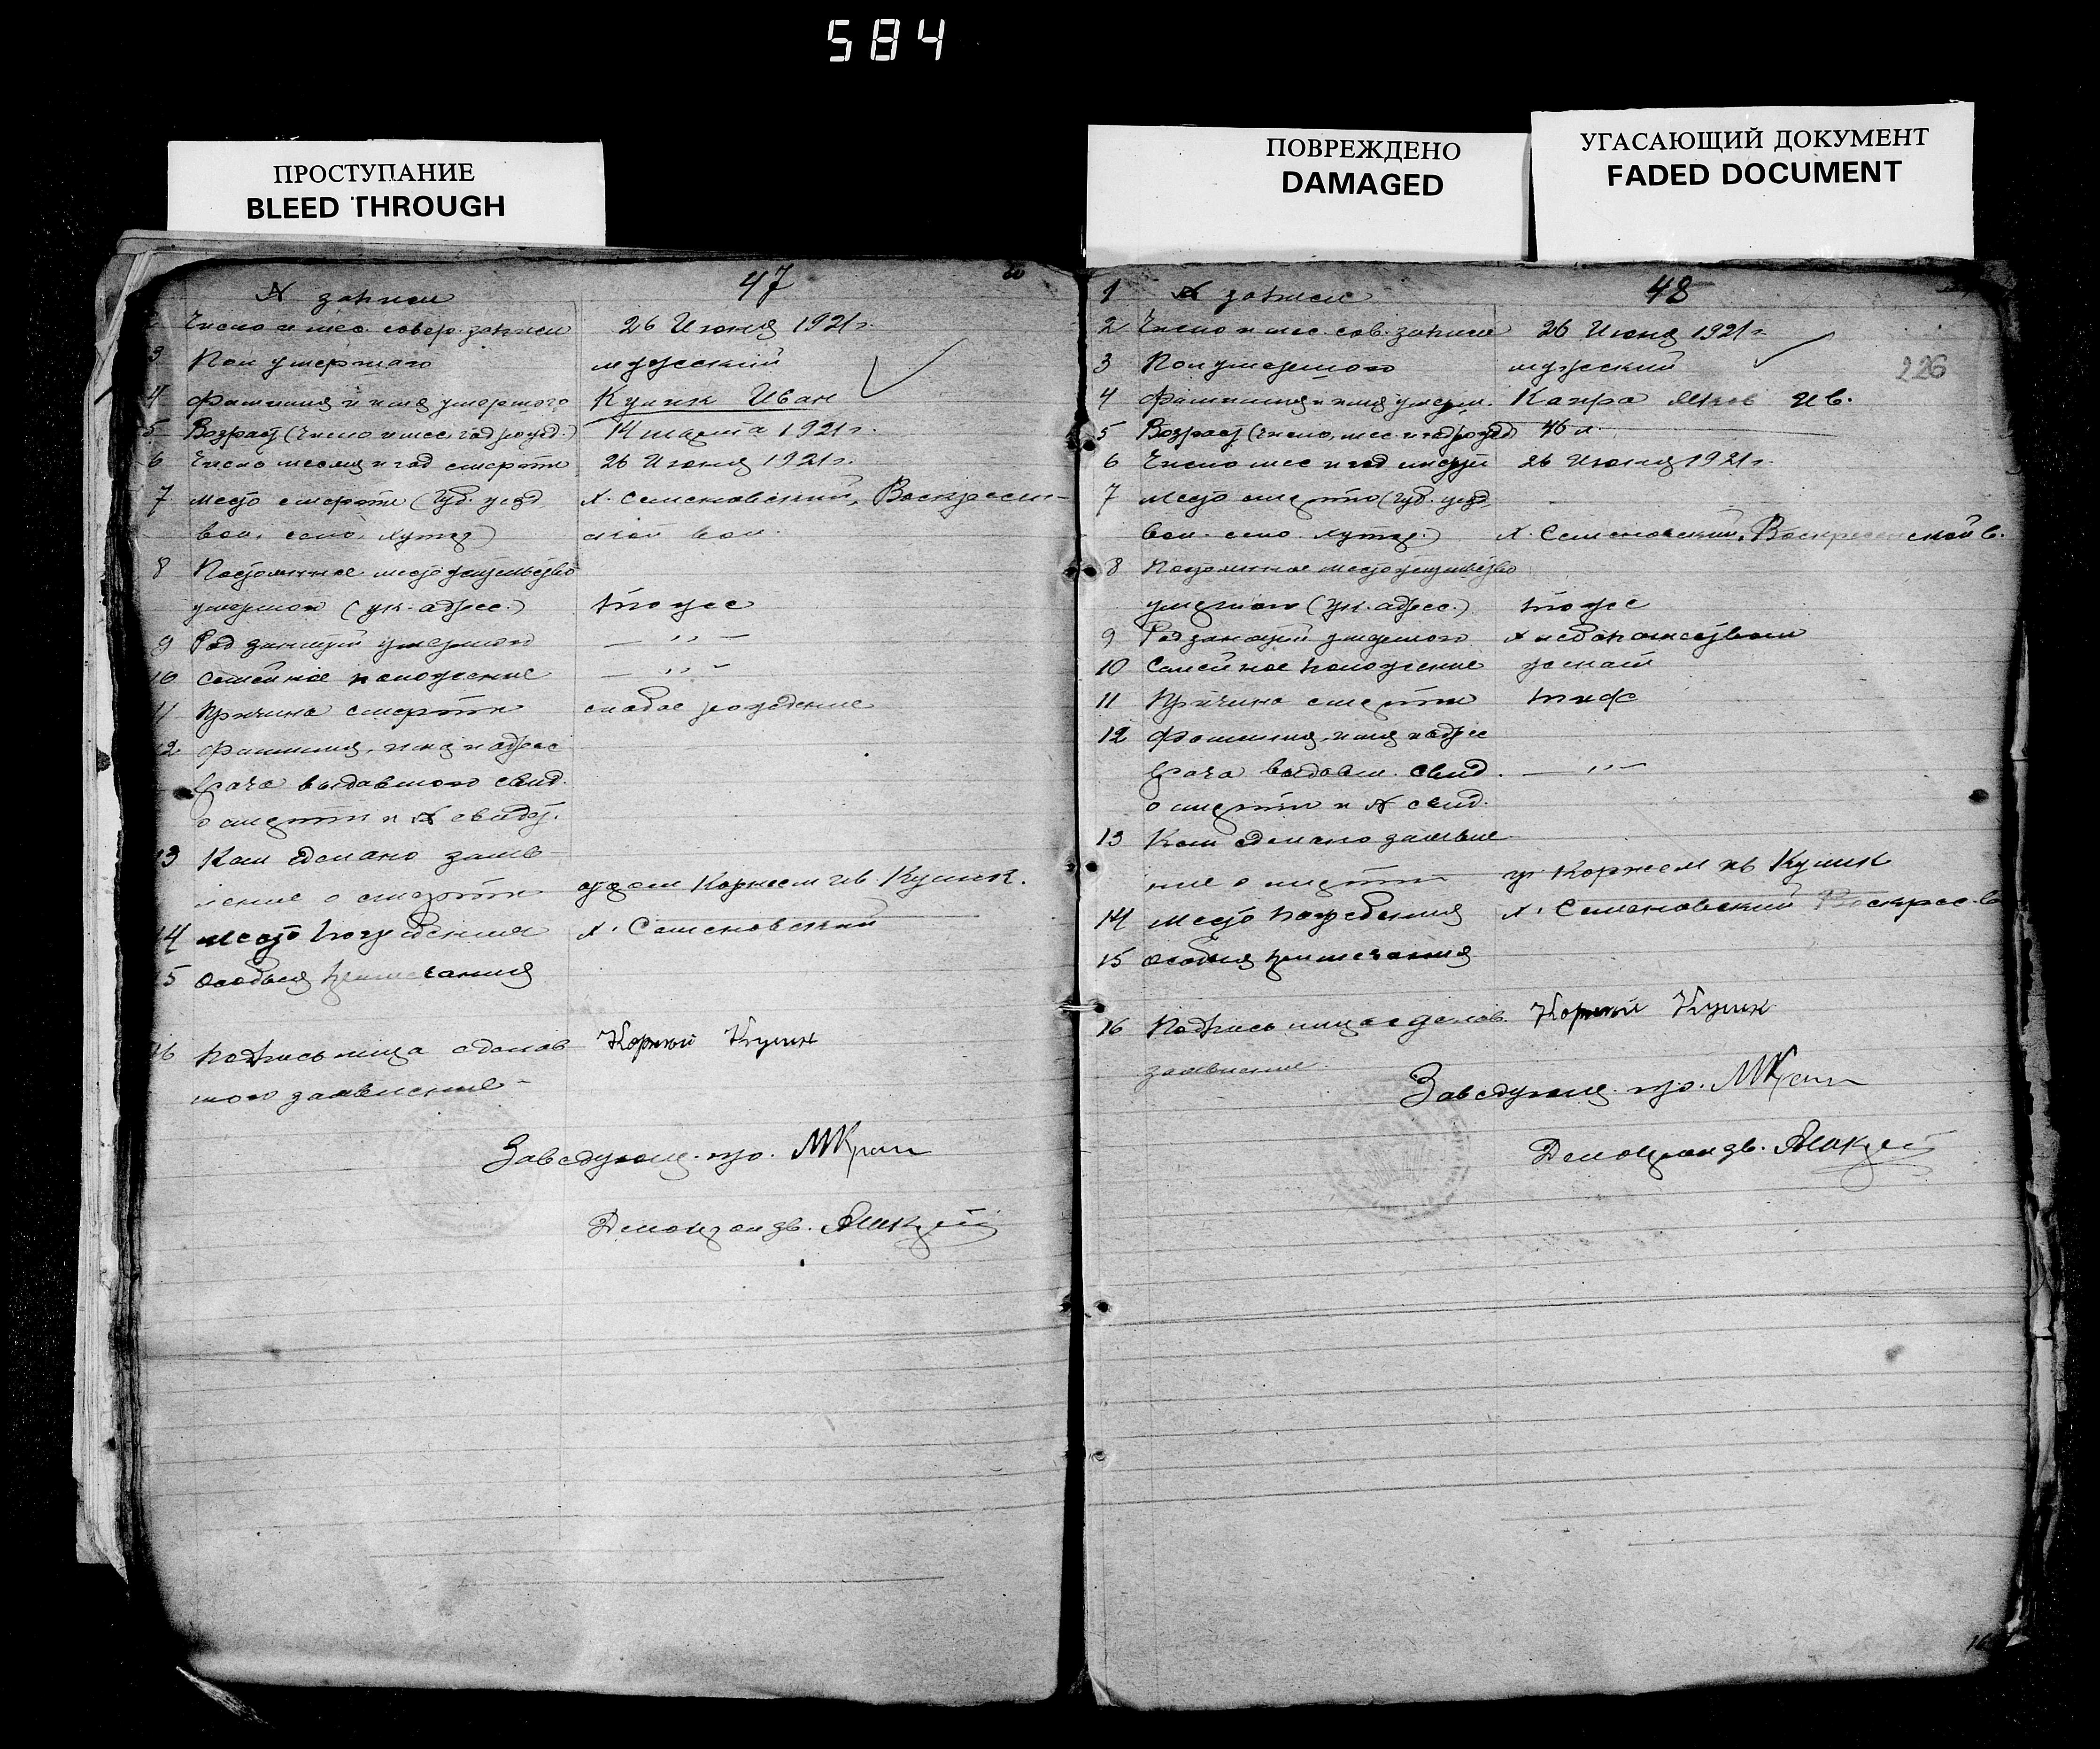 584
ПРОСТУПАНИЕ
BLEED THROUGH
ПОВРЕЖДЕНО
DAMAGED
УГАСАЮЩИЙ ДОКУМЕНТ
FADED DOCUMENT
№ записи 47
Число и мес. совер. записи 26 Июня 1921 г.
3 Пол умершаго мужеский
4 Фамилия и имя умершого Кулик Иван
5 Возраст (число и мес. год рожд.) 14 марта 1921 г.
6 Число месяц и год смерти 26 Июня 1921 г.
7 Место смерти (губ. уезд х. Семеновский, Воскресен-
вол. село, хутор) ской вол.
8 Постоянное местожительство
умершого (ук. адрес.) тоже
9 Род занятий умершого — ,, —
10 Семейное положение — ,, —
11 Причина смерти слабое рождение
12 Фамилия, имя и адрес
врача выдавшого свид.
о смерти и № свидет.
13 Кем сделано заяв-
ление о смерти отцом Корнеем Ив. Кулик.
14 Место погребения х. Семеновский
15 Особыя примечания
16 Подпись лица сделав Корний Кулик
шого заявление
Заведующ. МКрат
1 № записи 48
2 Число и мес. сов. записи 26 Июня 1921 г.
3 Пол умершого мужеский
226
4 Фамилия и имя умерш. Ив.
5 Возраст (число, мес. и год рожд 46 л.
6 Число мес и год смерти 26 Июня 1921 г.
7 Место смерти (губ. уезд,
вол. село. хутор.) х. Семеновский, Воскресенской в.
8 Постоянное местожительство
умершого (ук. адрес.) тоже
9 Род занятий умершого хлебопашеством
10 Семейное положение женат
11 Причина смерти тиф
12 Фамилия, имя и адрес
врача выдавш. свид. — ,, —
о смерти и № свид.
13 Кем сделано заявле
ние о смерти гр. Корнеем Ив Кулик
14 Место погребения х. Семеновский Воскрес. в
15 Особыя примечания
16 Подпись лица сделав. Корний Кулик
заявление.
Заведующ. МКрат